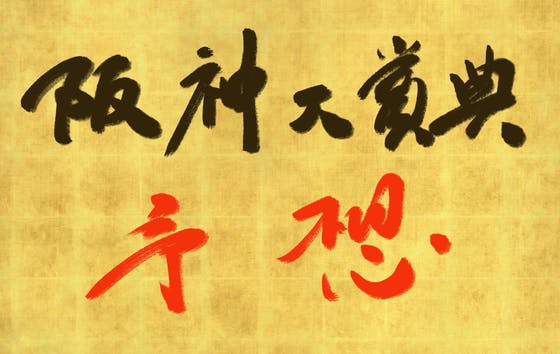 阪神大賞典
予想